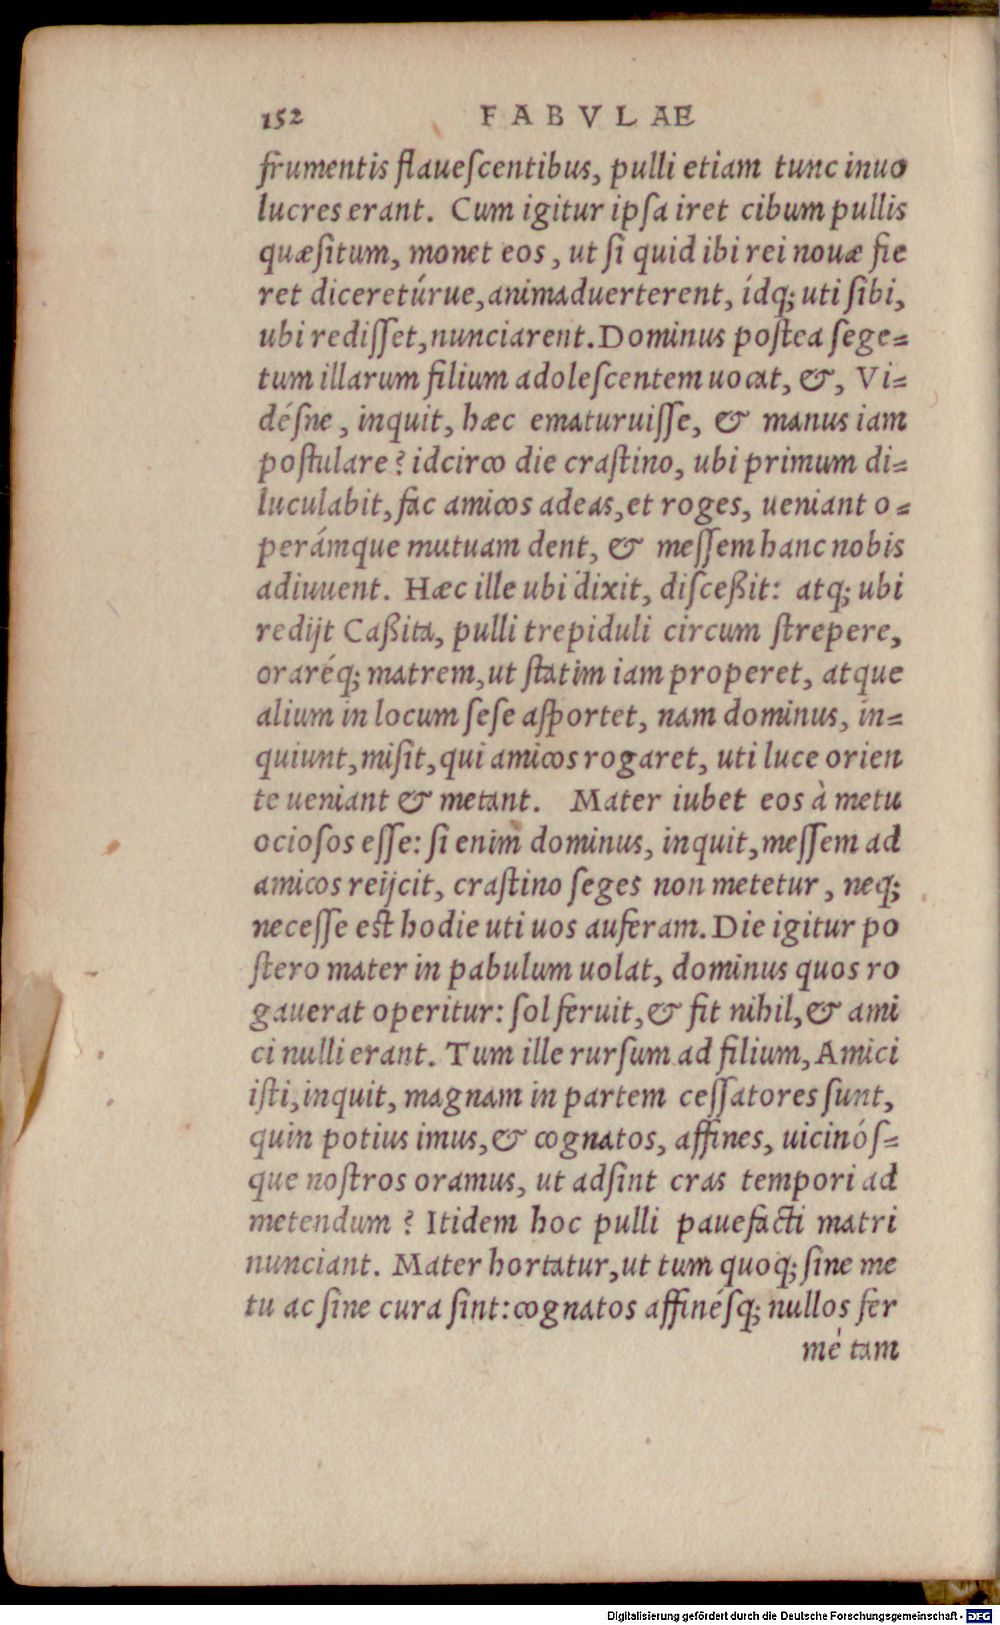 152 FABVLAE
frumentis flaueſcentibus, pulli etiam tunc inuo
lucres erant. Cum igitur ipſa iret cibum pullis
quæſitum, monet eos, ut ſi quid ibi rei nouæ fie
ret diceretúrue, animaduerterent, ídq; uti ſibi,
ubi rediſſet, nunciarent. Dominus poſtea ſege=
tum illarum filium adoleſcentem uocat, &, Vi=
déſne, inquit, hæc ematuruiſſe, & manus iam
poſtulare? idcirco die craſtino, ubi primum di=
luculabit, fac amicos adeas, et roges, ueniant o=
perámque mutuam dent, & meſſem hanc nobis
adiuuent. Hæc ille ubi dixit, diſceßit: atq; ubi
redijt Caßita, pulli trepiduli circum ſtrepere,
oraréq; matrem, ut ſtatim iam properet, atque
alium in locum ſeſe aſportet, nam dominus, in=
quiunt, miſit, qui amicos rogaret, uti luce orien
te ueniant & metant. Mater iubet eos à metu
ocioſos eſſe: ſi enim dominus, inquit, meſſem ad
amicos reijcit, craſtino ſeges non metetur, neq;
neceſſe est hodie uti uos auferam. Die igitur po
ſtero mater in pabulum uolat, dominus quos ro
gauerat operitur: ſol feruit, & fit nihil, & ami
ci nulli erant. Tum ille rurſum ad filium, Amici
iſti, inquit, magnam in partem ceſſatores ſunt,
quin potius imus, & cognatos, affines, uicinóſ=
que noſtros oramus, ut adſint cras tempori ad
metendum? Itidem hoc pulli pauefacti matri
nunciant. Mater hortatur, ut tum quoq; ſine me
tu ac ſine cura ſint: cognatos affinéſq; nullos fer
mé tam
Digitalisierung gefördert durch die Deutsche Forschungsgemeinschaft - DFG